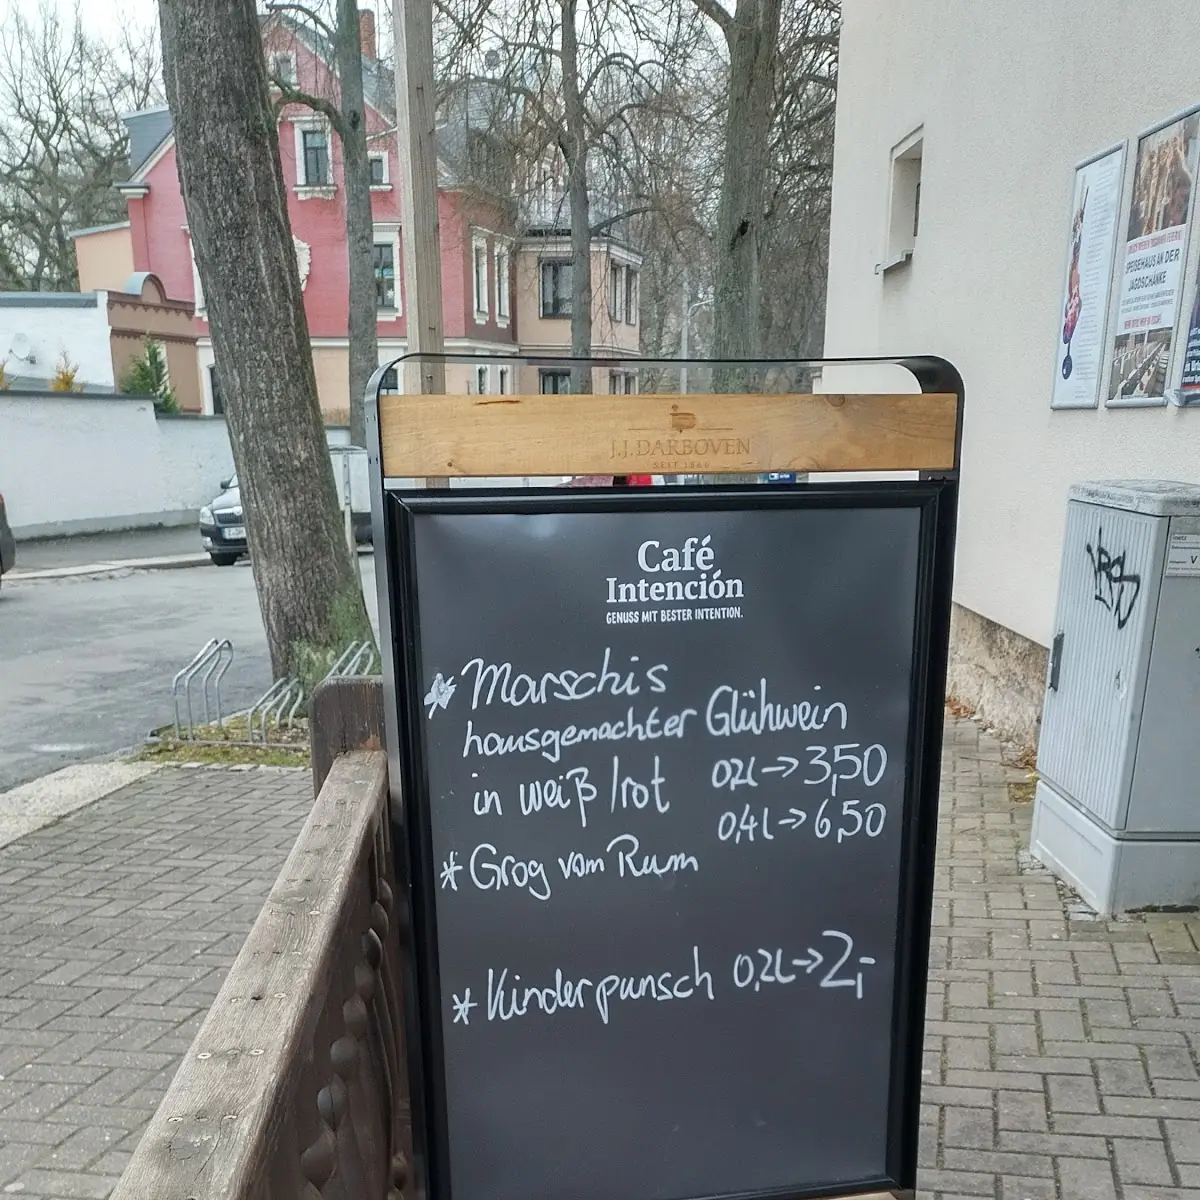 J.J. DARBOVEN
SEIT 1866
Café
Intención
GENUSS MIT BESTER INTENTION.
* Marschis
hausgemachter Glühwein
in weiß/rot 0,2l → 3,50
0,4l → 6,50
* Grog vom Rum
* Kinderpunsch 0,2l → 2,-
SPEISEHAUS AN DER
JAGDSCHÄNKE